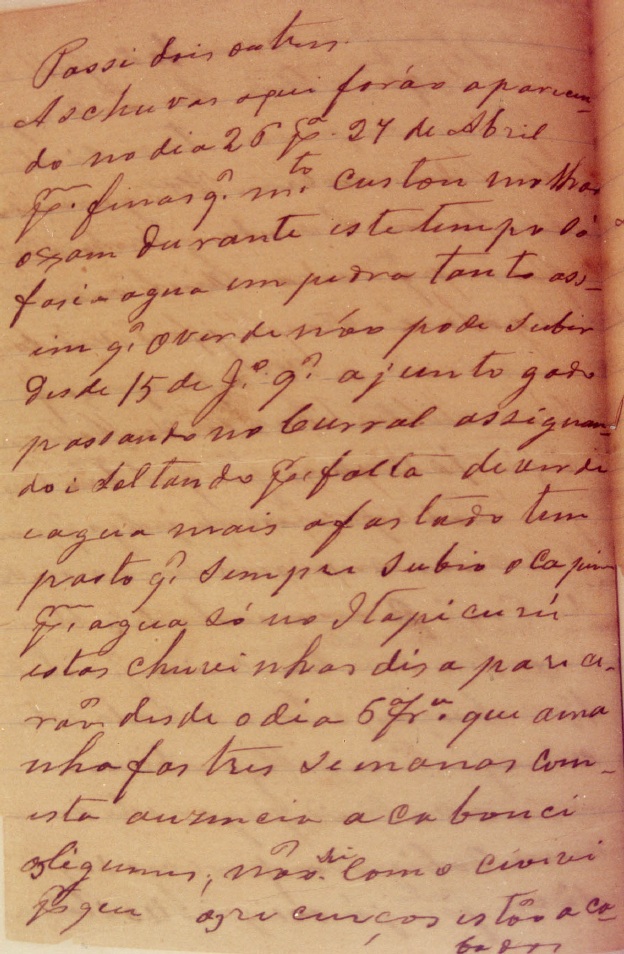 Passi dois outros.
As chuvas aqui forão aparicen-
do no dia 26 pª. 27 de Abril
pª. finas q'. m.to custou molhar
oxam durante este tempo só
fasia agua em pedra tanto ass-
im q'. o verde não pode subir
desde 15 de J.º q'. ajunto gado
passando no Curral assignan-
do i soltando pr. falta de verdi
i agua mais afastado tem
pasto q'. sempre subio o capim
pr. agua só no Itapicurú
estas chuvinhas disa pareci-
rão desde o dia 6ª fr.ª que ama
nha fas tres semanas com-
esta auzencia acabouci
os ligumes, não sei como civivi
pr que os recurços estão aca-
bados